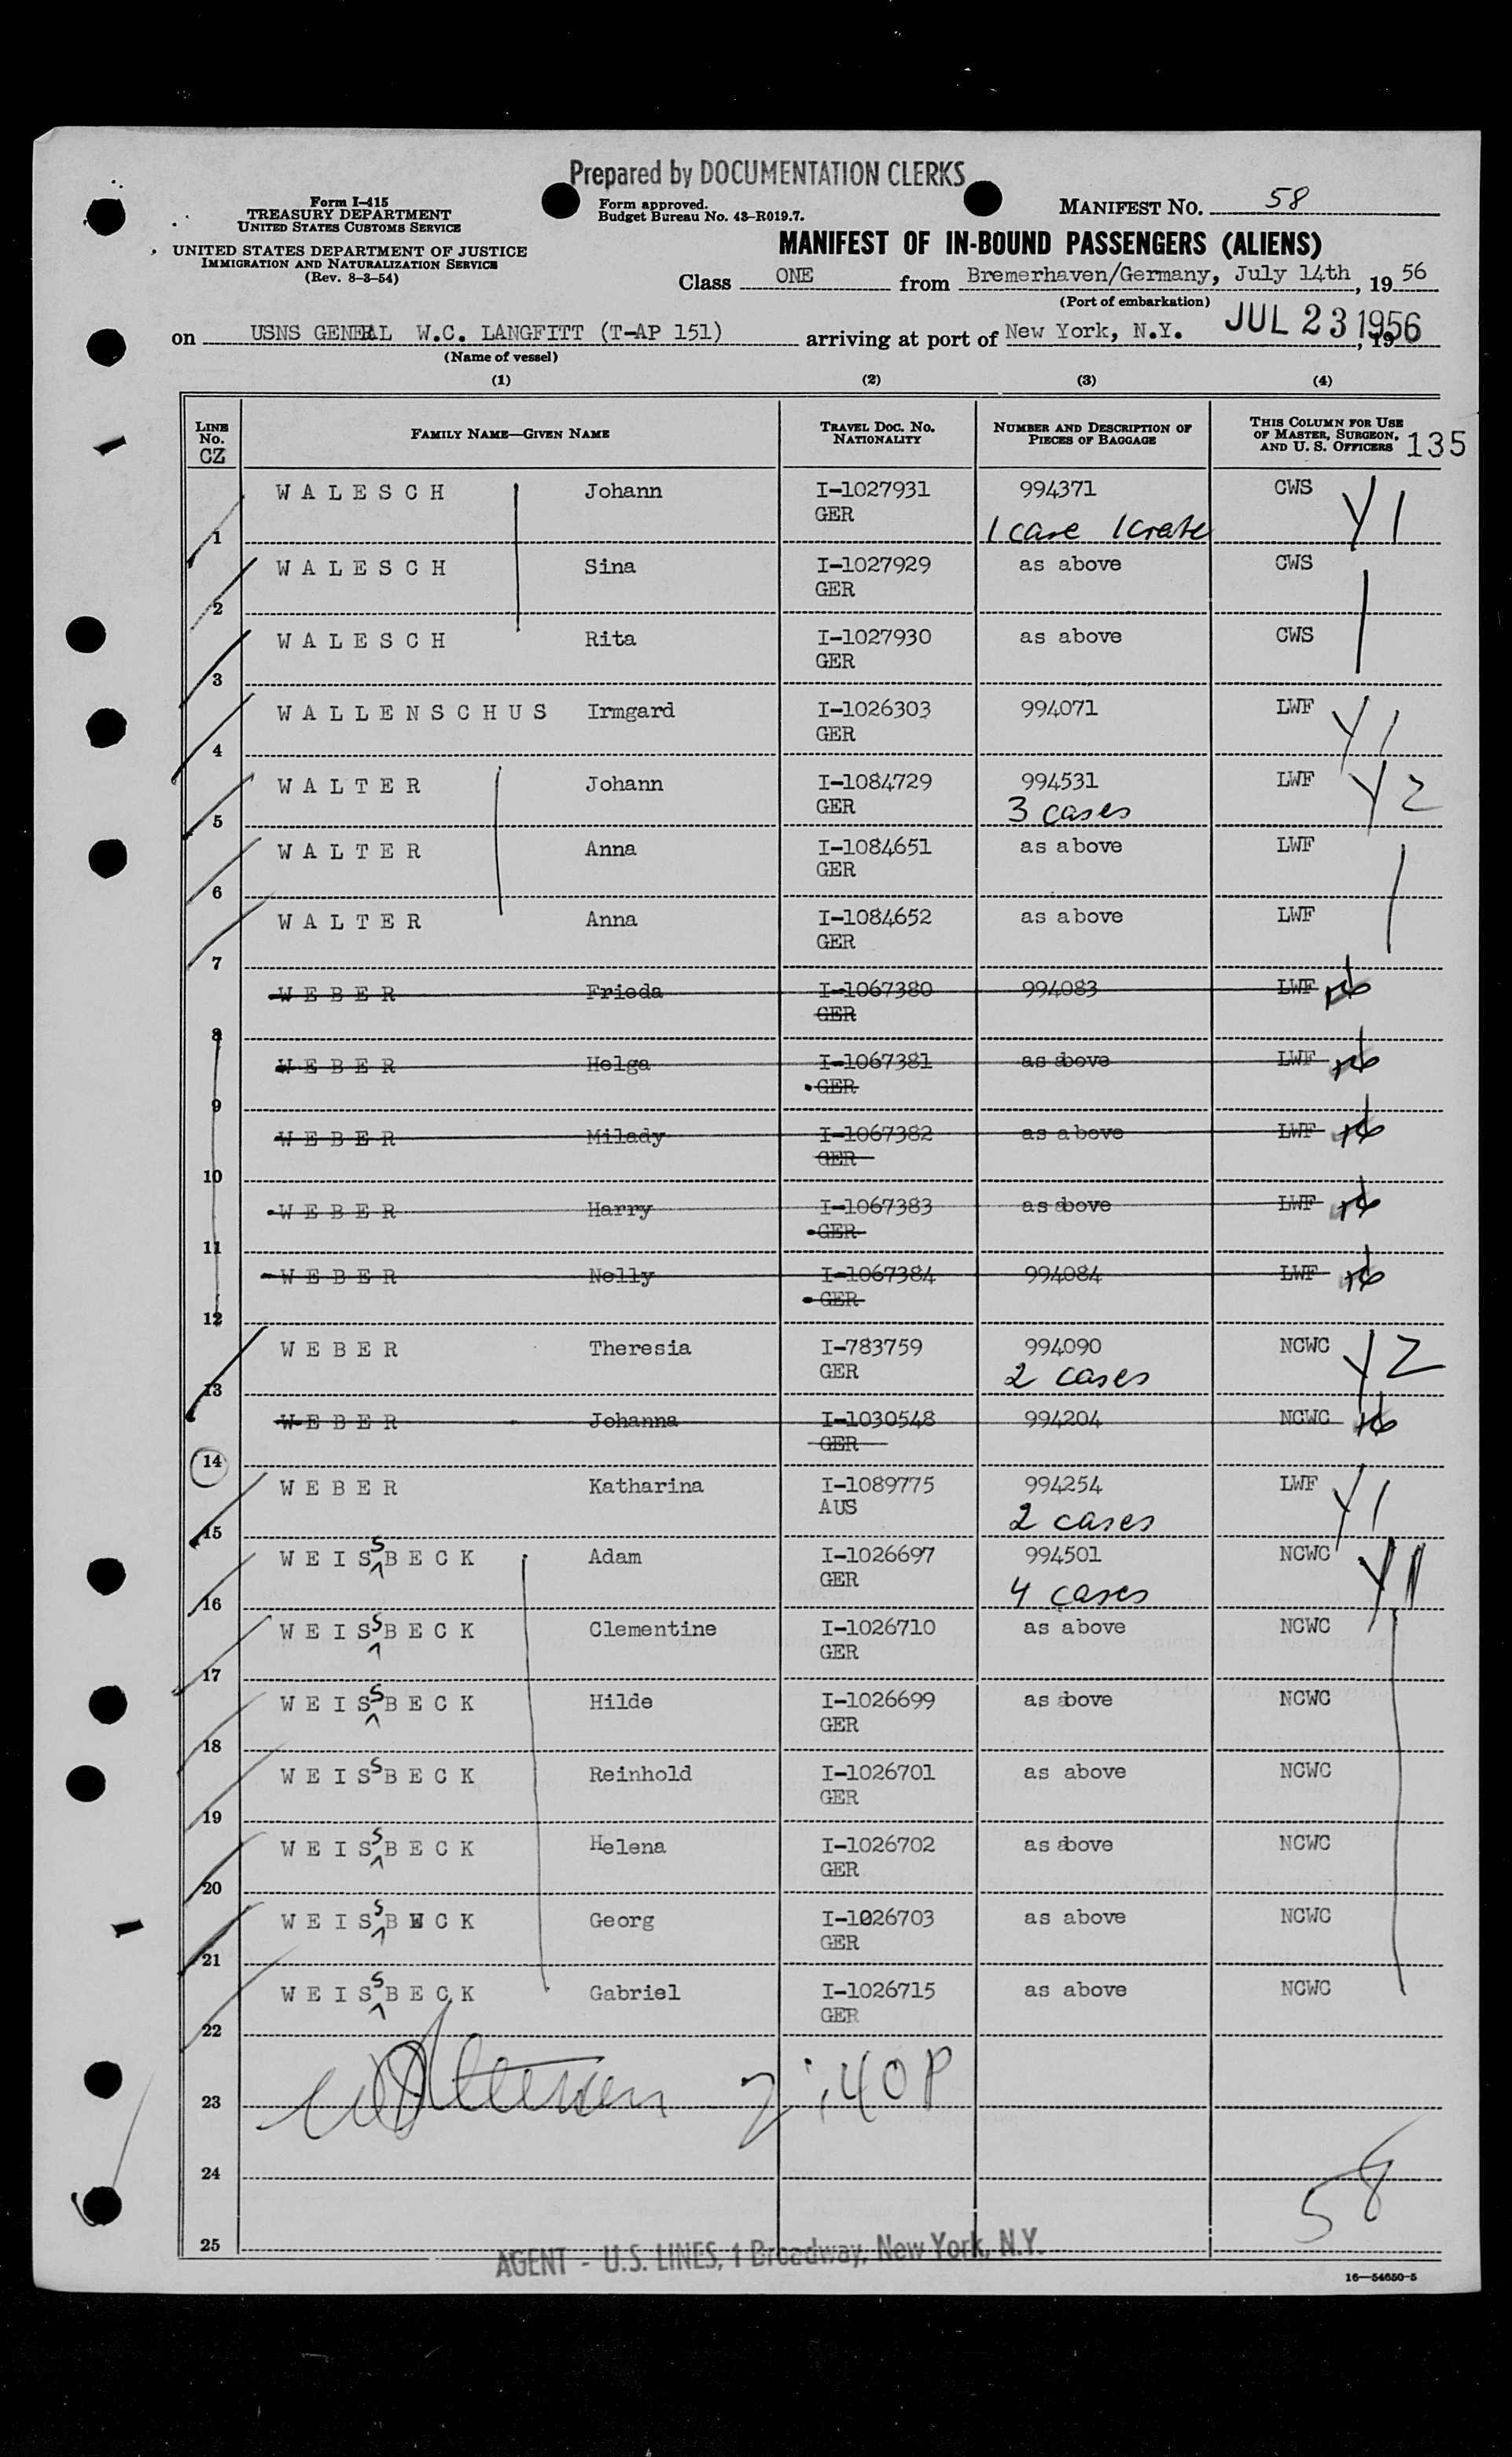 Prepared by DOCUMENTATION CLERKS
Form I-415
TREASURY DEPARTMENT
UNITED STATES CUSTOMS SERVICE
UNITED STATES DEPARTMENT OF JUSTICE
IMMIGRATION AND NATURALIZATION SERVICE
(Rev. 8-3-54)
Form approved.
Budget Bureau No. 43-R019.7.
MANIFEST NO. 58
MANIFEST OF IN-BOUND PASSENGERS (ALIENS)
Class ONE from Bremerhaven/Germany, July 14th, 19 56
(Port of embarkation)
on USNS GENERAL W.C. LANGFITT (T-AP 151) arriving at port of New York, N.Y. JUL 23 1956, 19
(Name of vessel)
(1) (2) (3) (4)
LINE No. CZ FAMILY NAME—GIVEN NAME TRAVEL DOC. NO. NATIONALITY NUMBER AND DESCRIPTION OF PIECES OF BAGGAGE THIS COLUMN FOR USE OF MASTER, SURGEON, AND U. S. OFFICERS 135
WALESCH Johann I-1027931 994371 CWS Y1
1 GER 1 case 1 crate
WALESCH Sina I-1027929 as above CWS
2 GER
WALESCH Rita I-1027930 as above CWS
3 GER
WALLENSCHUS Irmgard I-1026303 994071 LWF Y1
4 GER
WALTER Johann I-1084729 994531 LWF Y2
5 GER 3 cases
WALTER Anna I-1084651 as above LWF
6 GER
WALTER Anna I-1084652 as above LWF
7 GER
WEBER Frieda I-1067380 994083 LWF
8 GER
WEBER Helga I-1067381 as above LWF
9 GER
WEBER Milady I-1067382 as above LWF
10 GER
WEBER Harry I-1067383 as above LWF
11 GER
WEBER Nelly I-1067384 994084 LWF
12 GER
WEBER Theresia I-783759 994090 NCWC Y2
13 GER 2 cases
WEBER Johanna I-1030548 994204 NCWC
14 GER
WEBER Katharina I-1089775 994254 LWF Y1
15 AUS 2 cases
WEISSBECK Adam I-1026697 994501 NCWC Y1
16 GER 4 cases
WEISSBECK Clementine I-1026710 as above NCWC
17 GER
WEISSBECK Hilde I-1026699 as above NCWC
18 GER
WEISSBECK Reinhold I-1026701 as above NCWC
19 GER
WEISSBECK Helena I-1026702 as above NCWC
20 GER
WEISSBECK Georg I-1026703 as above NCWC
21 GER
WEISSBECK Gabriel I-1026715 as above NCWC
22 GER
23 2:40P
24
58
25
AGENT - U.S. LINES, 1 Broadway, New York, N.Y.
16—54650-5